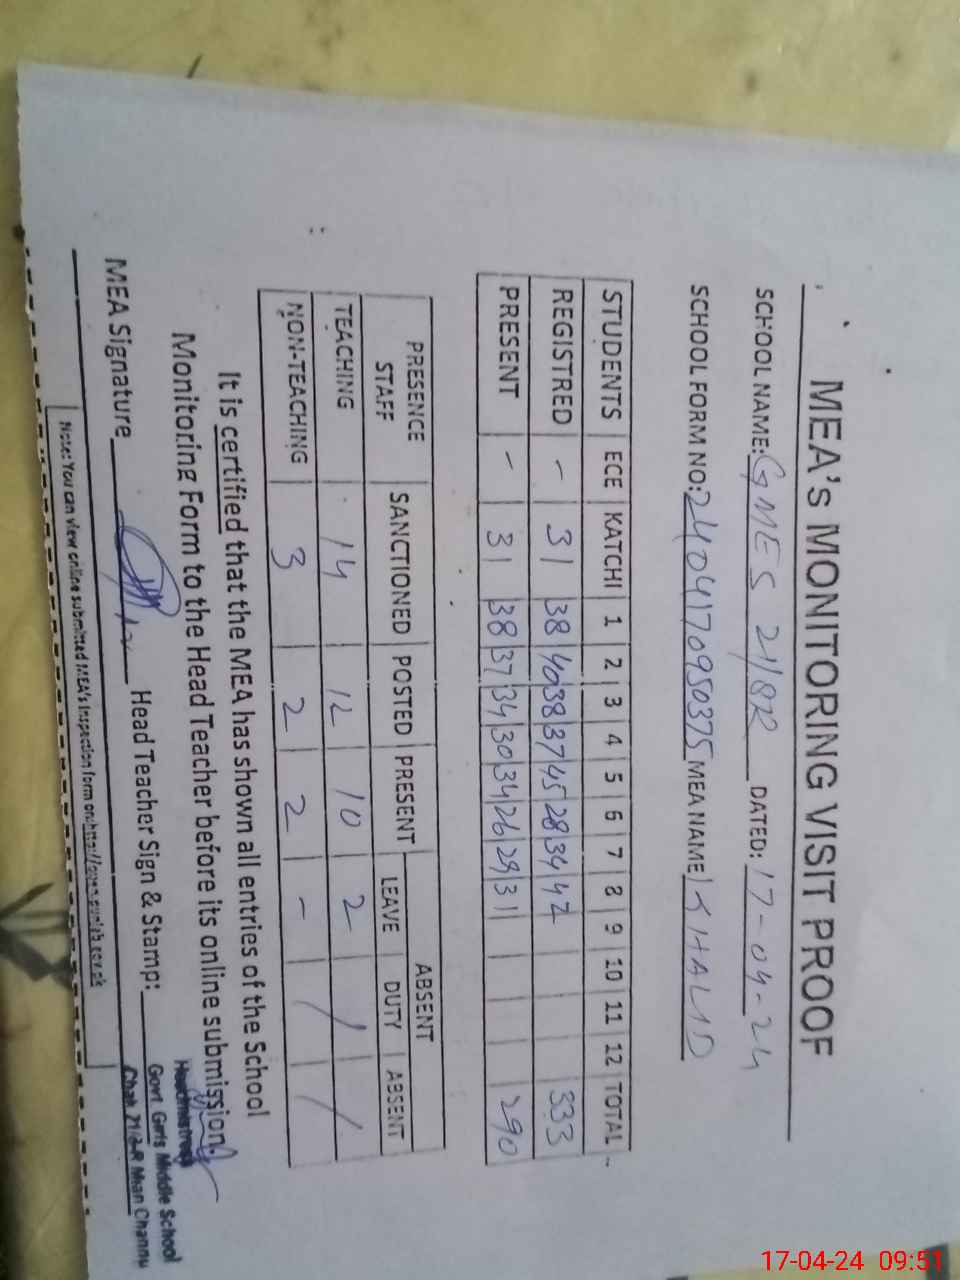 MEA's MONITORING VISIT PROOF
SCHOOL NAME: GMES 21/8R DATED: 17-04-24
SCHOOL FORM NO: 2404170950375 MEA NAME KHALID
STUDENTS ECE KATCHI 1 2 3 4 5 6 7 8 9 10 11 12 TOTAL
REGISTRED - 31 38 40 38 37 45 28 34 42 333
PRESENT - 31 38 37 34 30 34 26 29 31 290
PRESENCE STAFF SANCTIONED POSTED PRESENT ABSENT
LEAVE DUTY ABSENT
TEACHING 14 12 10 2 / /
NON-TEACHING 3 2 2 -
It is certified that the MEA has shown all entries of the School
Monitoring Form to the Head Teacher before its online submission.
MEA Signature Head Teacher Sign & Stamp:
Headmistress
Govt. Girls Middle School
Chak 21/8-R Mian Channu
Note: You can view online submitted MEA's Inspection form on:
17-04-24 09:51